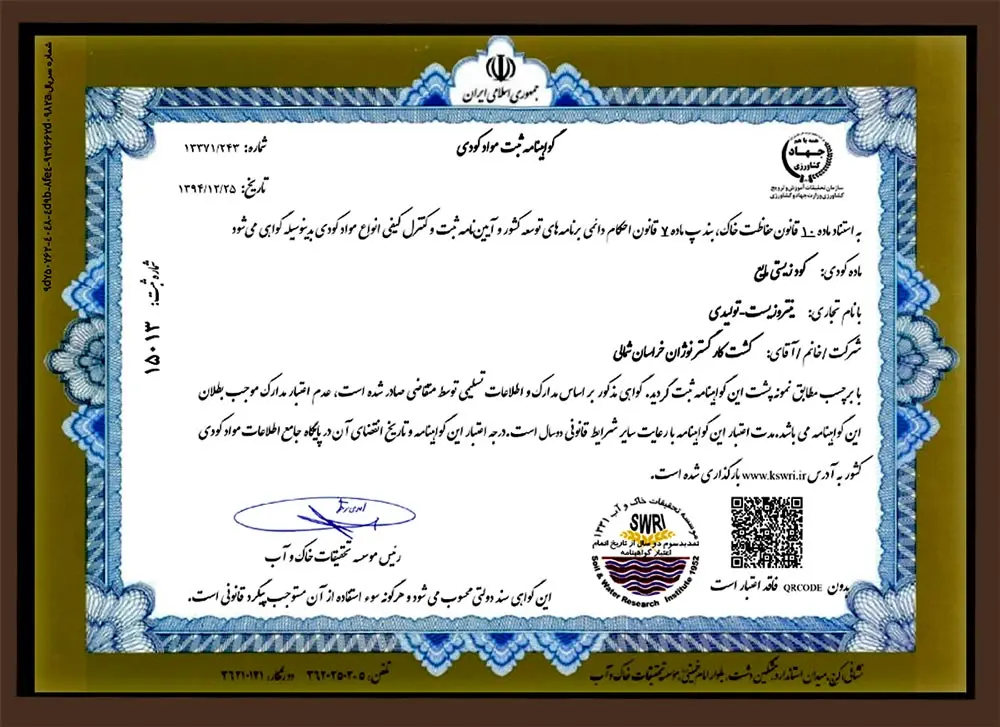 جمهوری اسلامی ایران
همه با هم
جهاد
کشاورزی
سازمان تحقیقات آموزش و ترویج
کشاورزی وزارت جهاد کشاورزی
گواهینامه ثبت مواد کودی
شماره: ۱۳۳۷۱/۲۴۳
تاریخ: ۱۳۹۴/۱۲/۲۵
به استناد ماده ۱۰ قانون حفاظت خاک، بند پ ماده ۷ قانون احکام دائمی برنامه های توسعه کشور و آیین نامه ثبت و کنترل کیفی انواع مواد کودی بدینوسیله گواهی می شود
ماده کودی: کود زیستی مایع
با نام تجاری: نیتروزیست-تولیدی
شرکت / خانم / آقای: کشت کار گستر نوژان خراسان شمالی
شماره ثبت: ۱۵۰۱۳
با برچسب مطابق نمونه پشت این گواهینامه ثبت گردید. گواهی مذکور بر اساس مدارک و اطلاعات تسلیمی توسط متقاضی صادر شده است، عدم اعتبار مدارک موجب بطلان
این گواهینامه می باشد. مدت اعتبار این گواهینامه با رعایت سایر شرایط قانونی دو سال است. درجه اعتبار این گواهینامه و تاریخ انقضای آن در پایگاه جامع اطلاعات مواد کودی
کشور به آدرس www.kswri.ir بارگذاری شده است.
موسسه تحقیقات خاک و آب ۱۳۳۱
SWRI
تمدید سوم دو سال از تاریخ اتمام
اعتبار گواهینامه
Soil & Water Research Institute 1952
رئیس موسسه تحقیقات خاک و آب
بدون QRCODE فاقد اعتبار است
این گواهی سند دولتی محسوب می شود و هرگونه سوء استفاده از آن مستوجب پیگرد قانونی است.
نشانی: کرج، میدان استاندارد، مشکین دشت، بلوار امام خمینی، موسسه تحقیقات خاک و آب
تلفن: ۵-۳۶۲۰۲۵۰۲ دورنگار: ۳۶۲۱۰۱۲۱